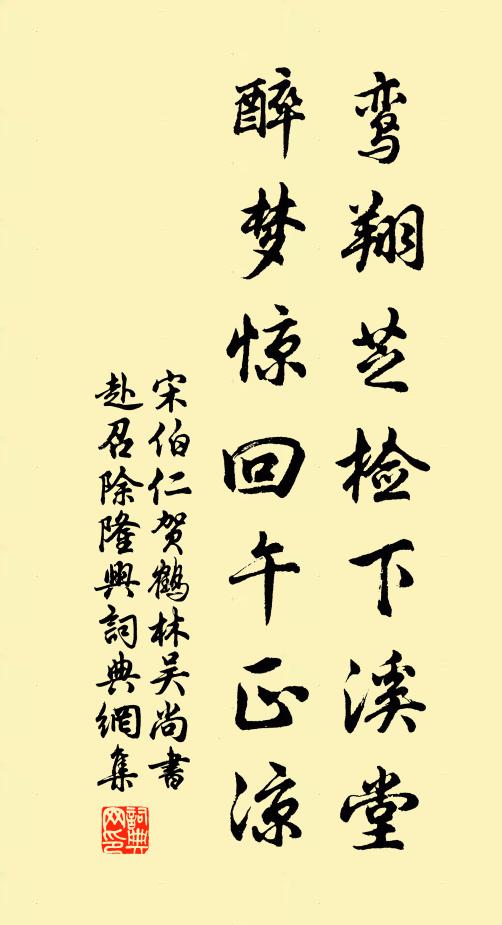 鸾翔芝检下溪堂
醉梦惊回午正凉
宋伯仁贺鹤林吴尚書
赴召除隆興詞典網集
詞典
网印